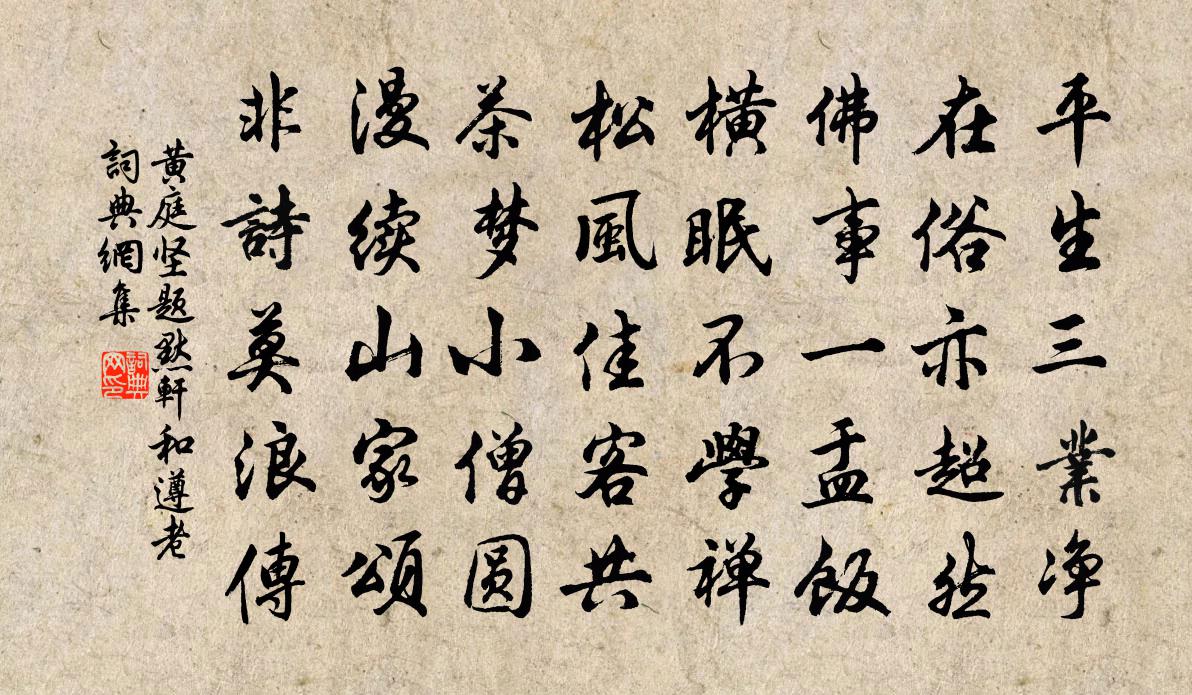 平生三業净
在俗亦超然
佛事一盂飯
橫眠不學禅
松風佳客共
茶梦小僧圆
漫续山家頌
非詩莫浪傳
黄庭坚題默軒和遵老
詞典網集
詞典网印